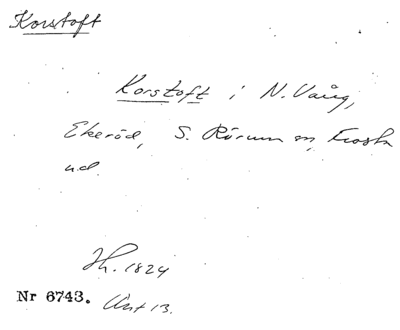 Korstoft
Korstoft i N. Vång,
Ekeröd, S. Rörum sn, Frosta
hd.
Jh. 1824
Nr 6743. Akt 13.